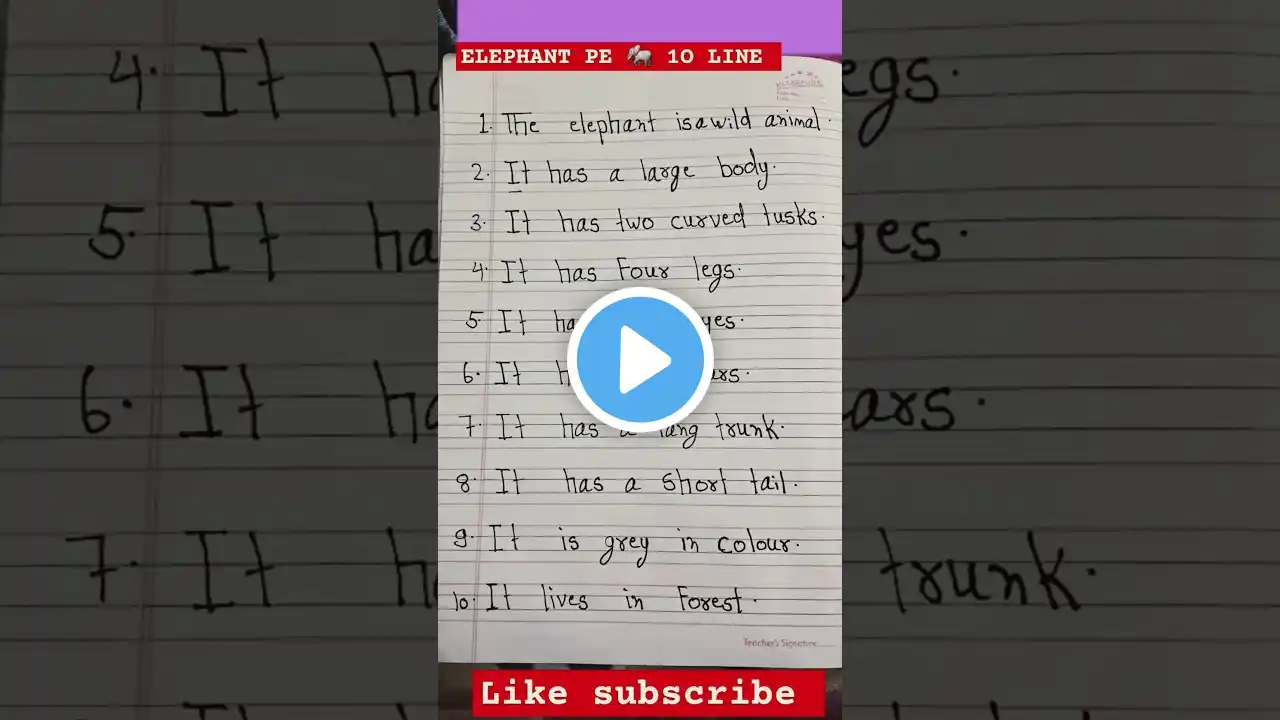 ELEPHANT PE 10 LINE
1. The elephant is a wild animal.
2. It has a large body.
3. It has two curved tusks.
4. It has Four legs.
5. It
6. It
7. It has a trunk.
8. It has a short tail.
9. It is grey in colour.
10. It lives in Forest.
Teacher's Signature
Like subscribe